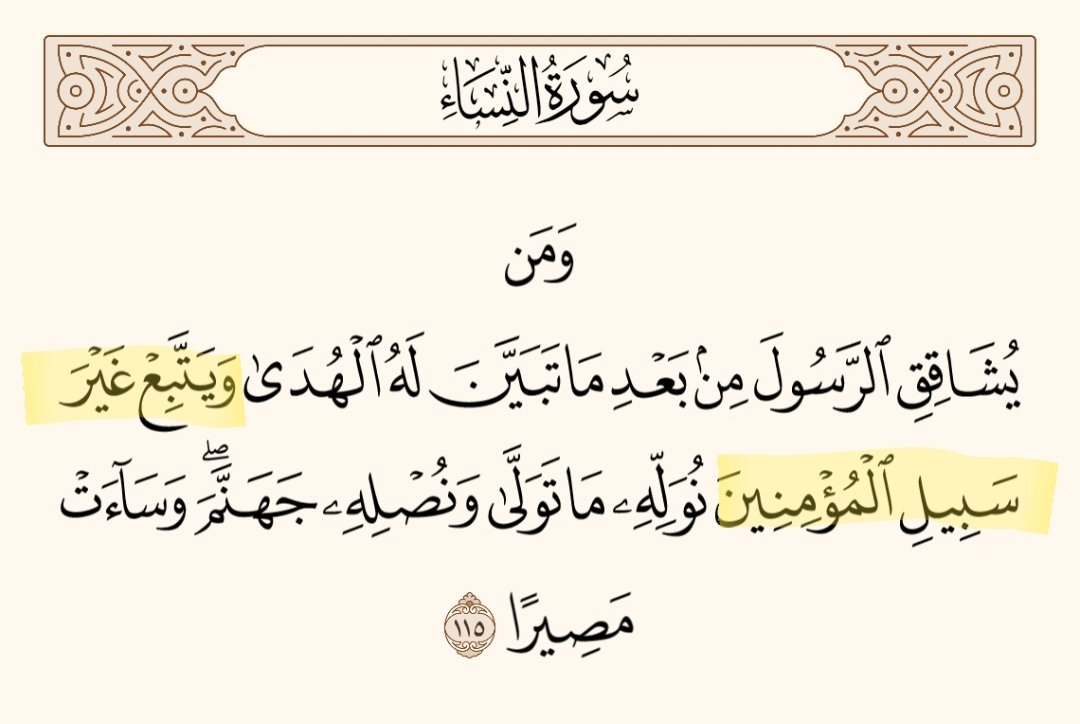 سُورَةُ النِّسَاءِ
وَمَن
يُشَاقِقِ ٱلرَّسُولَ مِنۢ بَعْدِ مَا تَبَيَّنَ لَهُ ٱلْهُدَىٰ وَيَتَّبِعْ غَيْرَ
سَبِيلِ ٱلْمُؤْمِنِينَ نُوَلِّهِۦ مَا تَوَلَّىٰ وَنُصْلِهِۦ جَهَنَّمَۖ وَسَآءَتْ
مَصِيرًا ١١٥